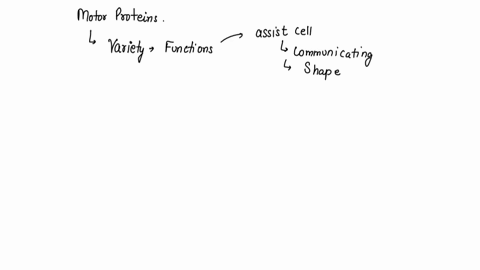 Motor Proteins.
↳ Variety → Functions → assist cell
↳ Communicating
↳ Shape